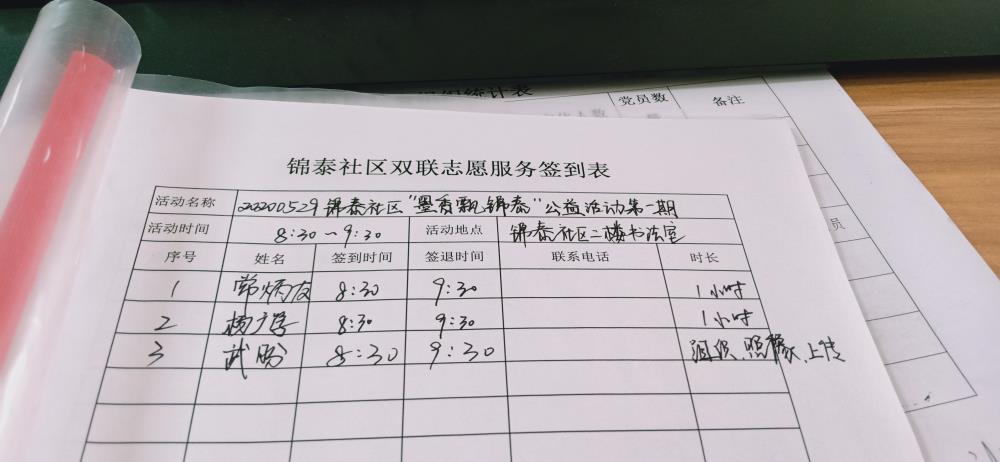 统计表
党员数
备注
员
锦泰社区双联志愿服务签到表
活动名称 20200529锦泰社区"墨香飘锦泰"公益活动第一期
活动时间 8:30～9:30 活动地点 锦泰社区二楼书法室
序号 姓名 签到时间 签退时间 联系电话 时长
1 常炳友 8:30 9:30 1小时
2 杨广学 8:30 9:30 1小时
3 武盼 8:30 9:30 组织、照像、上传